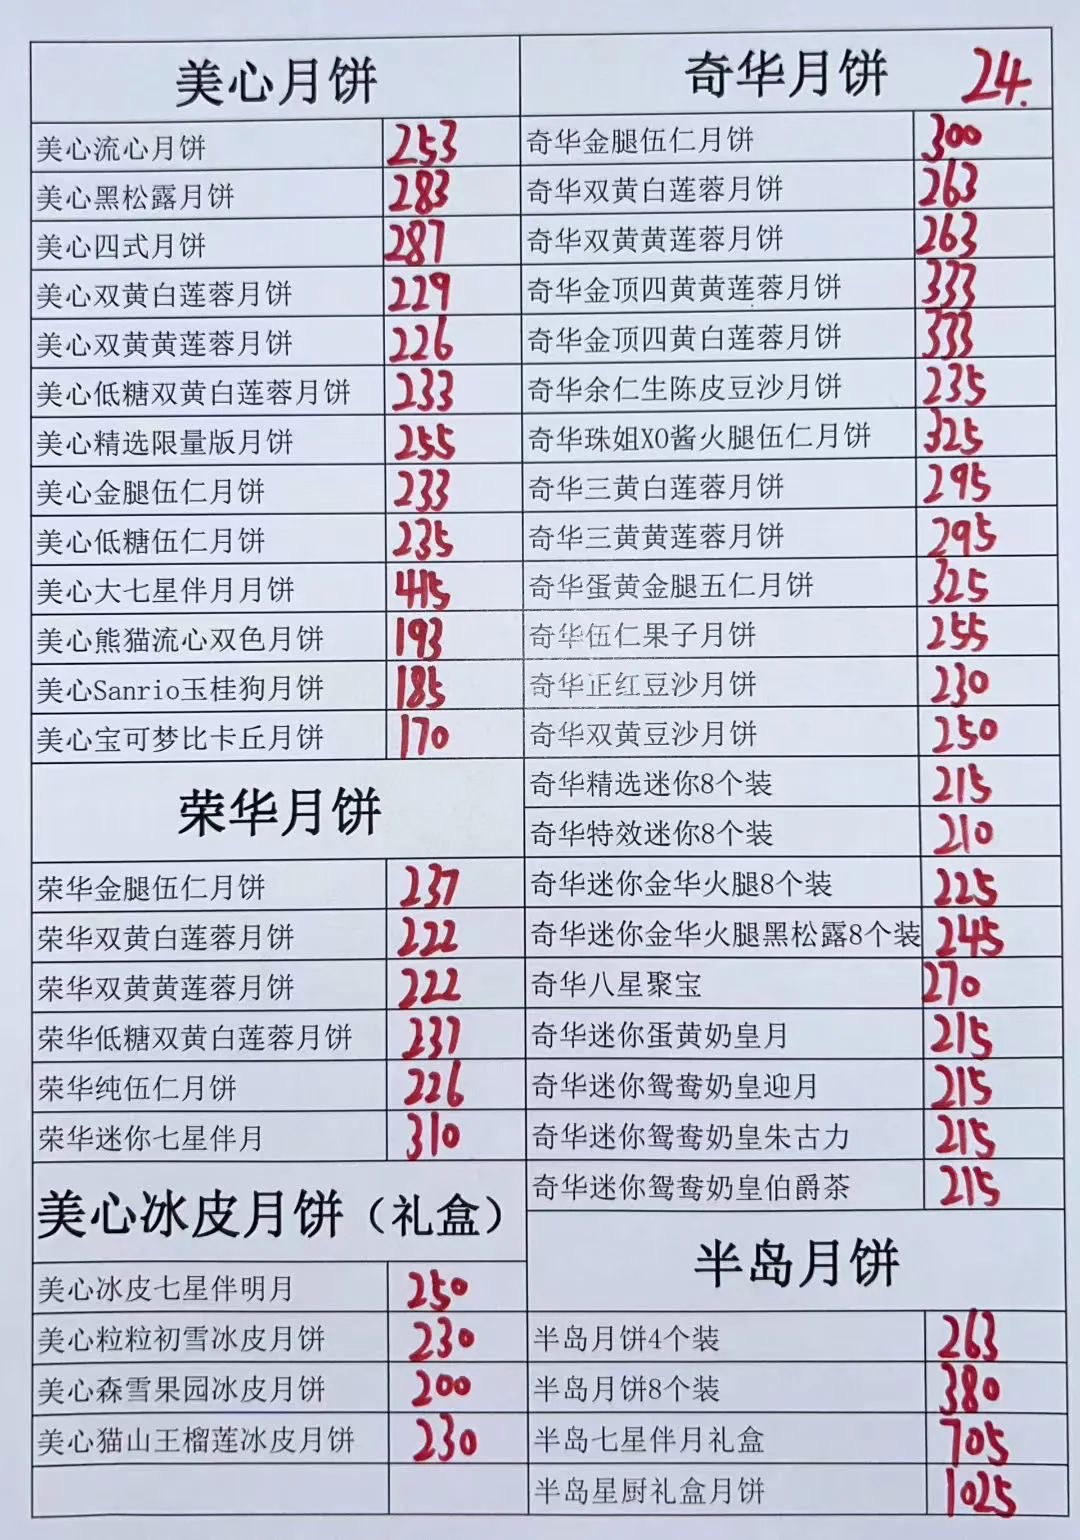 美心月饼
美心流心月饼 253
美心黑松露月饼 283
美心四式月饼 287
美心双黄白莲蓉月饼 229
美心双黄黄莲蓉月饼 226
美心低糖双黄白莲蓉月饼 233
美心精选限量版月饼 255
美心金腿伍仁月饼 233
美心低糖伍仁月饼 235
美心大七星伴月月饼 445
美心熊猫流心双色月饼 193
美心Sanrio玉桂狗月饼 185
美心宝可梦比卡丘月饼 170
荣华月饼
荣华金腿伍仁月饼 237
荣华双黄白莲蓉月饼 222
荣华双黄黄莲蓉月饼 222
荣华低糖双黄白莲蓉月饼 237
荣华纯伍仁月饼 226
荣华迷你七星伴月 310
美心冰皮月饼（礼盒）
美心冰皮七星伴明月 250
美心粒粒初雪冰皮月饼 230
美心森雪果园冰皮月饼 200
美心猫山王榴莲冰皮月饼 230
奇华月饼 24.
奇华金腿伍仁月饼 300
奇华双黄白莲蓉月饼 263
奇华双黄黄莲蓉月饼 263
奇华金顶四黄黄莲蓉月饼 333
奇华金顶四黄白莲蓉月饼 333
奇华余仁生陈皮豆沙月饼 235
奇华珠姐XO酱火腿伍仁月饼 325
奇华三黄白莲蓉月饼 295
奇华三黄黄莲蓉月饼 295
奇华蛋黄金腿五仁月饼 325
奇华伍仁果子月饼 255
奇华正红豆沙月饼 230
奇华双黄豆沙月饼 250
奇华精选迷你8个装 215
奇华特效迷你8个装 210
奇华迷你金华火腿8个装 225
奇华迷你金华火腿黑松露8个装 245
奇华八星聚宝 270
奇华迷你蛋黄奶皇月 215
奇华迷你鸳鸯奶皇迎月 215
奇华迷你鸳鸯奶皇朱古力 215
奇华迷你鸳鸯奶皇伯爵茶 215
半岛月饼
半岛月饼4个装 263
半岛月饼8个装 380
半岛七星伴月礼盒 705
半岛星厨礼盒月饼 1025